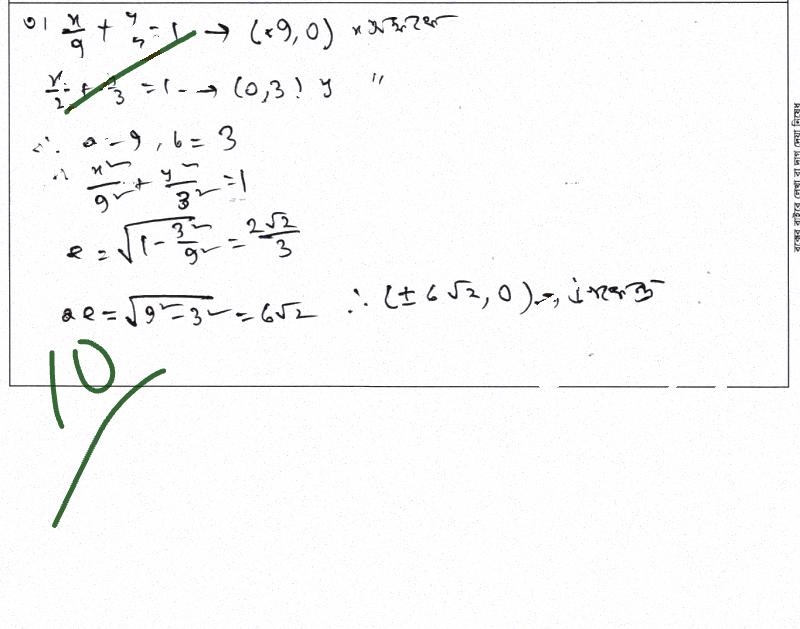 ৩। x/9 + y/7 = 1 → (+9,0) x অক্ষকে
x/2 + y/3 = 1 → (0,3) y "
∴ a = 9, b = 3
∴ x²/9² + y²/3² = 1
e = √(1 - 3²/9²) = 2√2/3
ae = √(9² - 3²) = 6√2 ∴ (± 6√2, 0) →
10
বক্সের বাইরে লেখা বা দাগ দেয়া নিষেধ